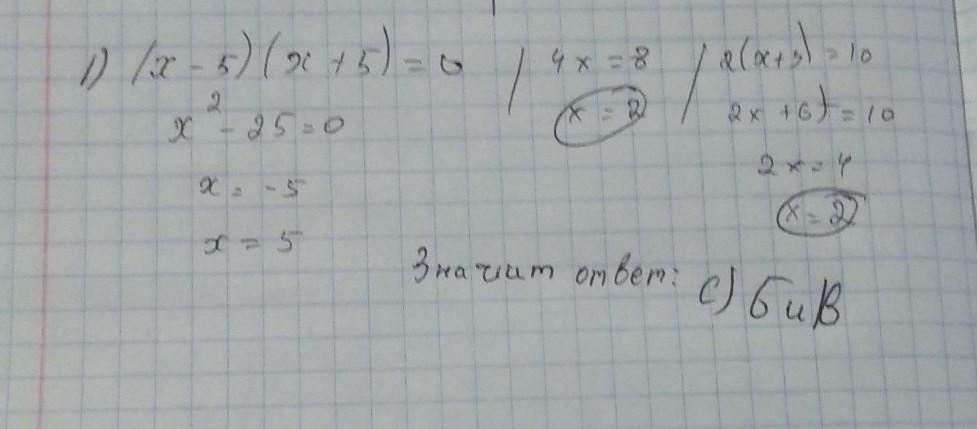 1) (x - 5)(x + 5) = 0 / 4x = 8 / 2(x+3) = 10
x² - 25 = 0
x = 2
2x + 6) = 10
x = -5
2x = 4
x = 5
x = 2
Значит ответ: С) Б и В